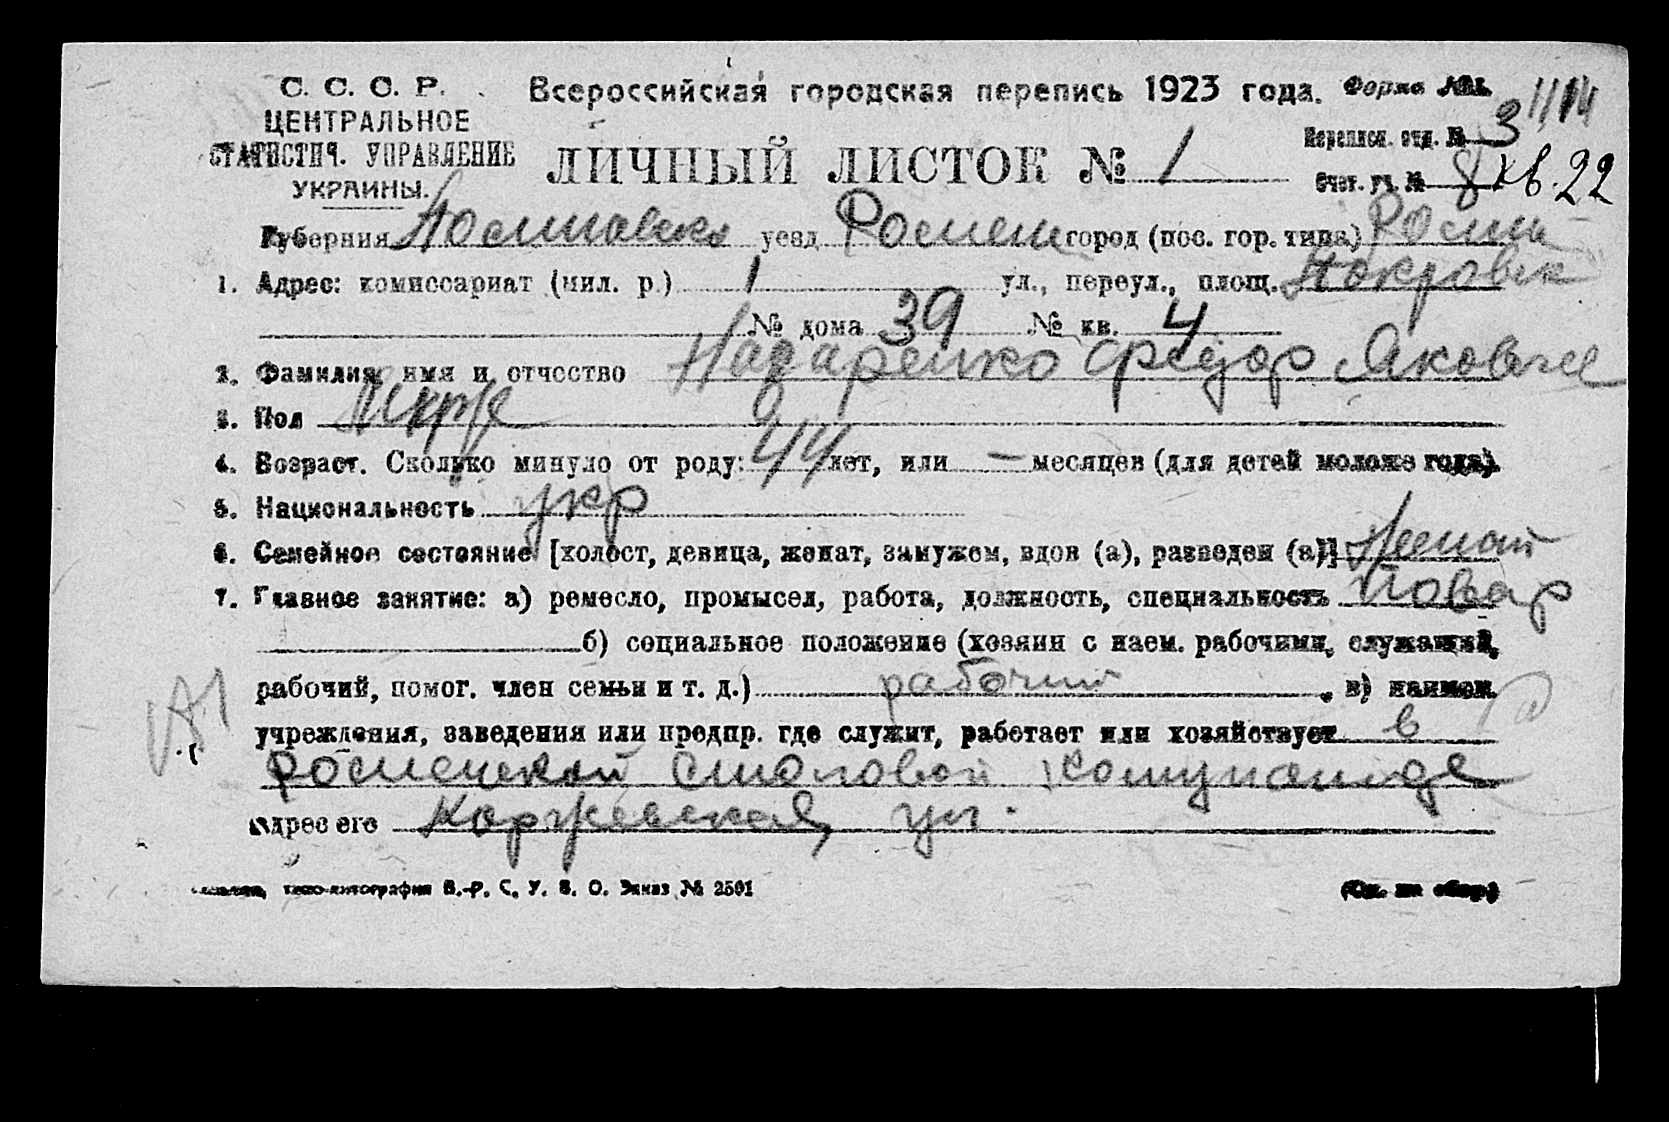 С. С. С. Р.
ЦЕНТРАЛЬНОЕ
СТАТИСТИЧ. УПРАВЛЕНИЕ
УКРАИНЫ.
Всероссийская городская перепись 1923 года. Форма №1.
1114
ЛИЧНЫЙ ЛИСТОК № 1
Переписн. отд. № 3
Счет. уч. № 8 кв. 22
Губерния Полтавска уезд Роменск город (пос. гор. типа) Ромни
1. Адрес: комиссариат (мил. р.) 1 ул., переул., площ. Покровск
№ дома 39 № кв. 4
2. Фамилия, имя и отчество Назаренко Федор Яковле
3. Пол Муж
4. Возраст. Сколько минуло от роду: 44 лет, или — месяцев (для детей моложе года).
5. Национальность укр
6. Семейное состояние [холост, девица, женат, замужем, вдов (а), разведен (а)] Женат
7. Главное занятие: а) ремесло, промысел, работа, должность, специальность Повар
б) социальное положение (хозяин с наем. рабочими, служащий,
рабочий, помог. член семьи и т. д.) рабочий, в) наимен.
учреждения, заведения или предпр. где служит, работает или хозяйствует в
Роменской столовой
Адрес его Коржевская ул.
типо-литография В.-Р. С. У. В. О. Заказ № 2591
(См. на обор.)